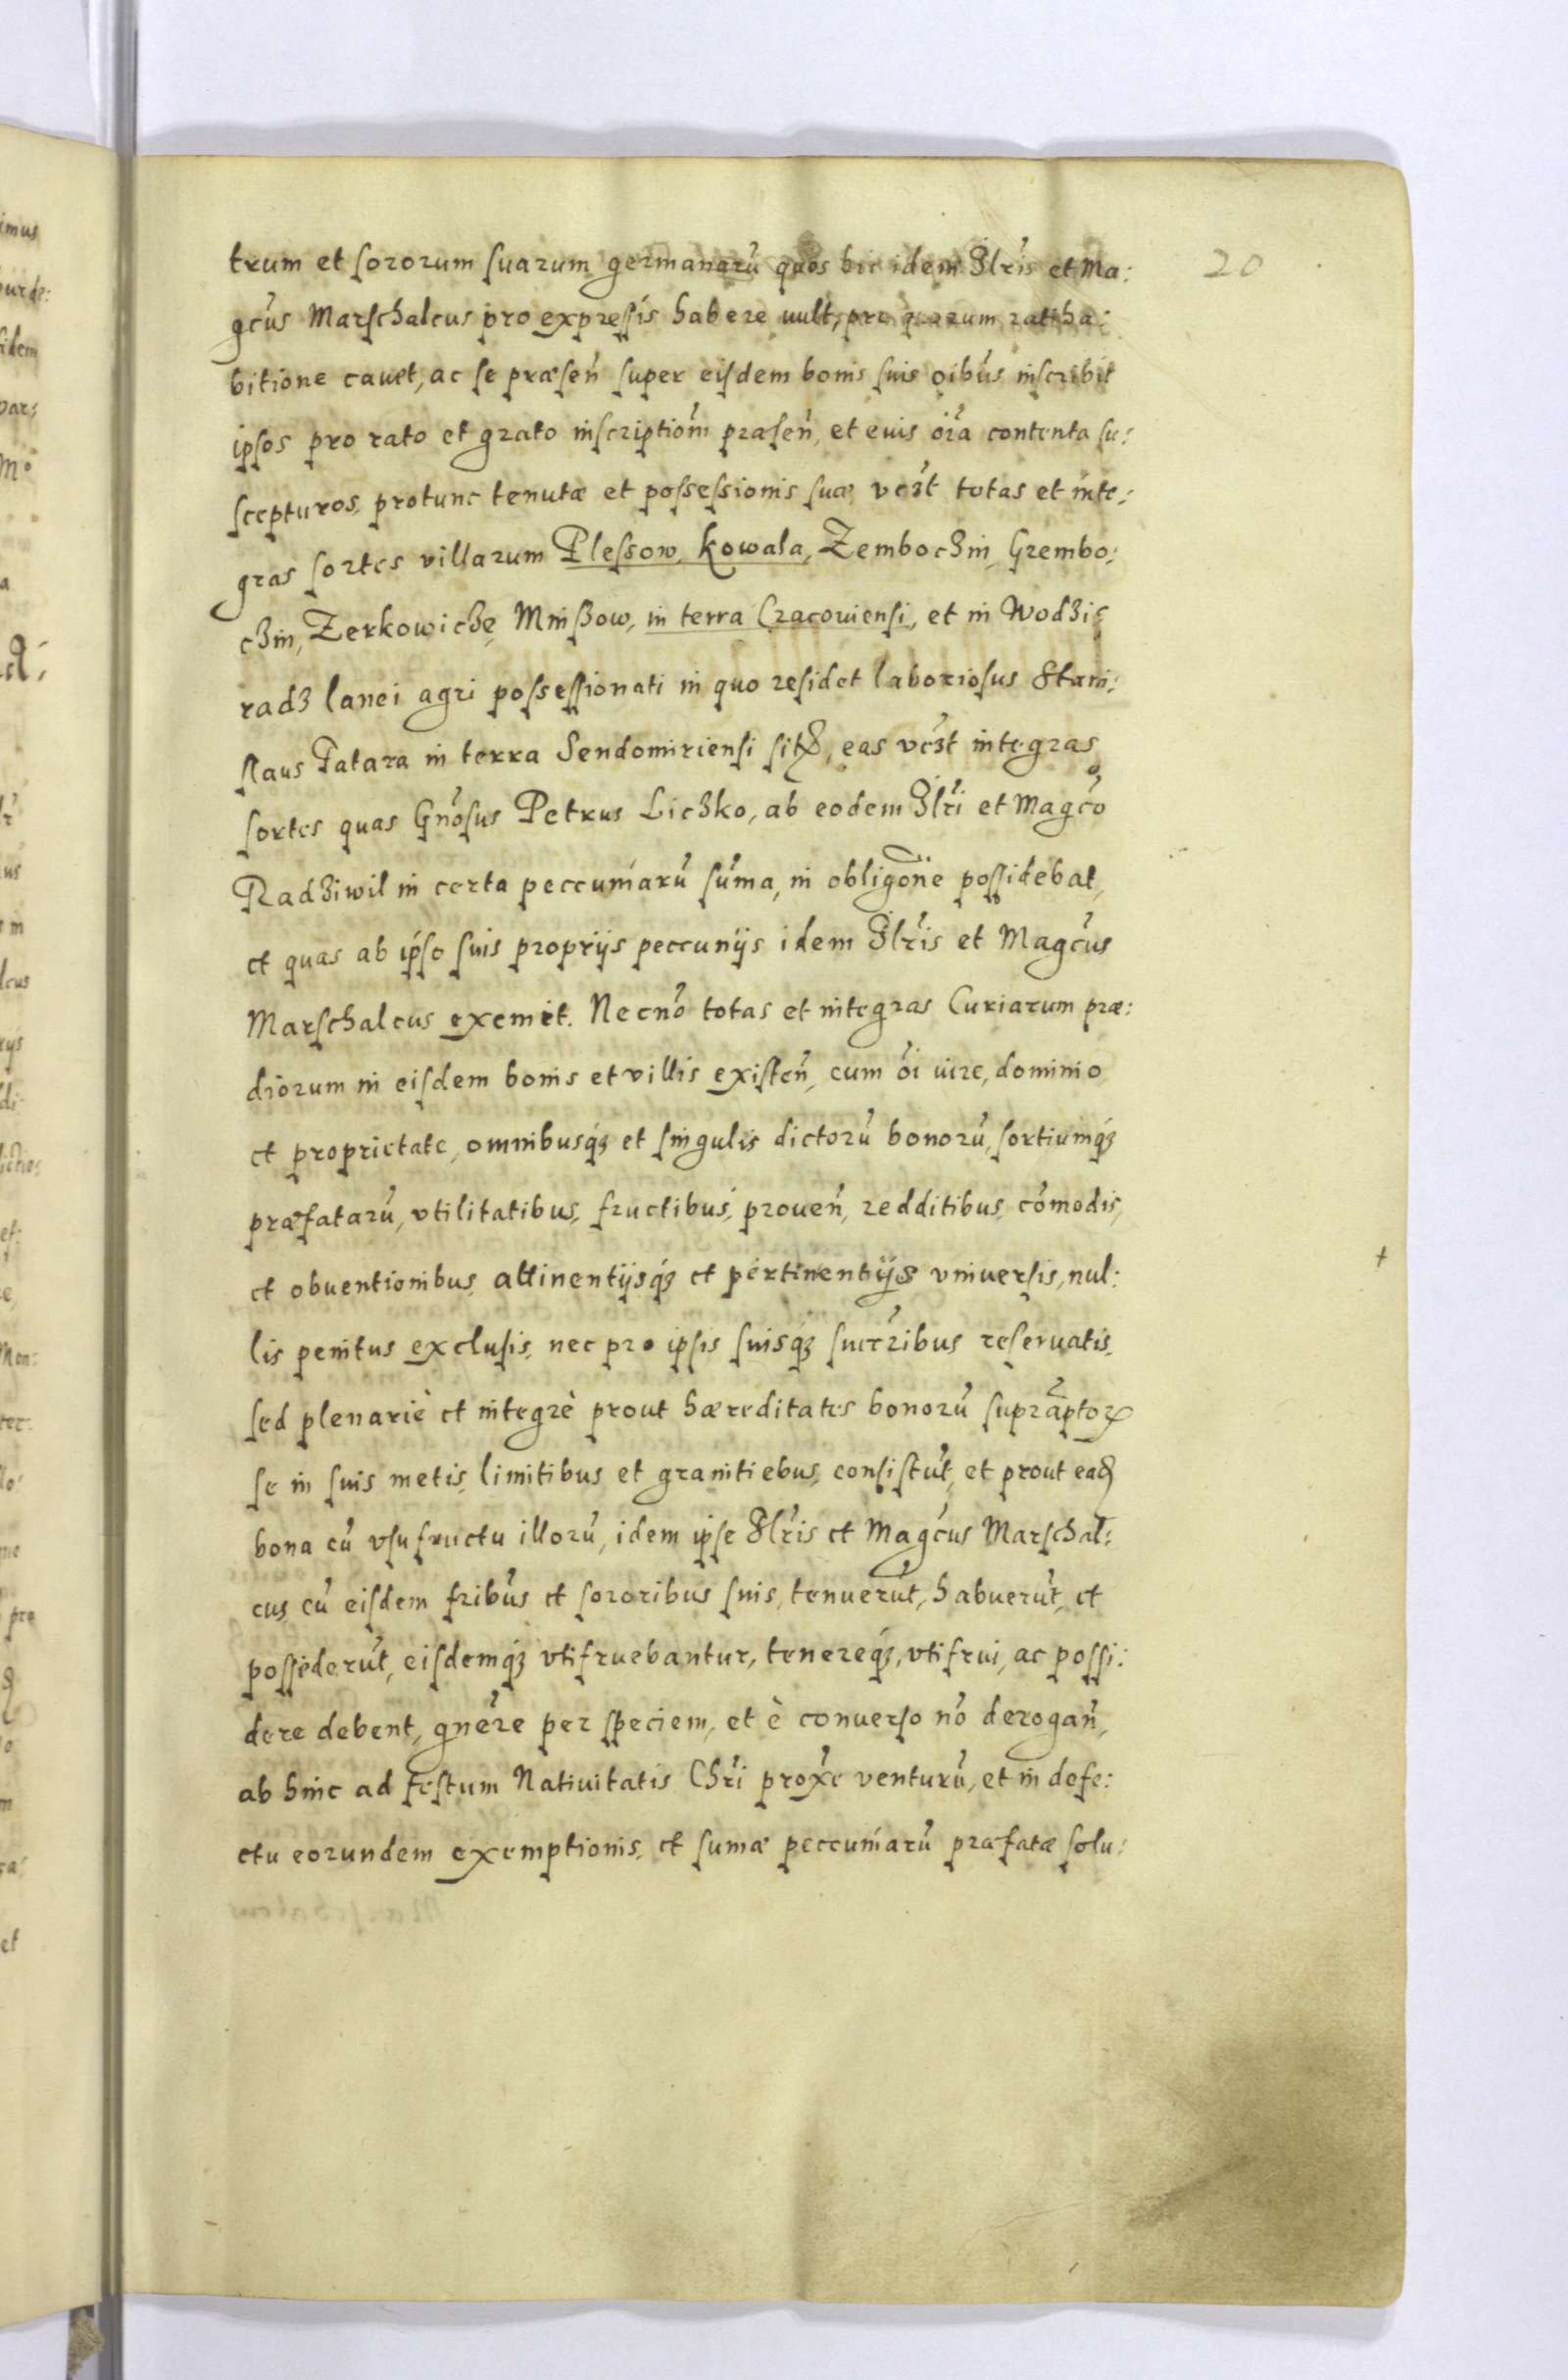 20
trum et sororum suarum germanarũ quos hic idem Illr̃is et Ma:
gcũs Marschalcus pro expressis habere uult, pro quarum ratiha:
bitione cauet, ac se præseñ super eisdem bonis suis oibũs inscribit
ipsos pro rato et grato inscriptiom̃ præseñ, et eius oĩa contenta su:
scepturos, protunc tenutæ et possessionis suæ, vczt̃ totas et inte:
gras sortes villarum Plessow, Kowala, Zembochin, Grembo:
chin, Zerkowichę Mnißow, in terra Cracouiensi, et in Wodzi:
radz lanei agri possessionati in quo residet laboriosus Stani:
slaus Tatara in terra Sendomiriensi sit̃, eas vczt̃ integras
sortes quas Gnõsus Petrus Liczko, ab eodem Illr̃i et Magcõ
Radziwil in certa peccuniarũ sũma, in obligõne possidebat,
et quas ab ipso suis proprijs peccunijs idem Illr̃is et Magcũs
Marschalcus exemit. Necnõ totas et integras Curiarum præ:
diorum in eisdem bonis et villis existeñ, cum õi iure, dominio
et proprietate, omnibusq́ꝫ et singulis dictorũ bonorũ, sortiumq́ꝫ
præfatarũ, vtilitatibus, fructibus, proueñ, redditibus, cõmodis,
et obuentionibus, attinentijsq́ꝫ et pertinentijs vniuersis, nul:
lis penitus exclusis, nec pro ipsis suisq́ꝫ succr̃ibus reseruatis,
sed plenariè et integrè prout hæreditates bonorũ suprãptorꝝ
se in suis metis, limitibus et granitiebus, consistũt, et prout ead̃
bona cũ vsufructu illorũ, idem ipse Illr̃is et Magcũs Marschal:
cus, cũ eisdem fribũs et sororibus suis, tenuerũt, habuerũt, et
possederũt, eisdemq́ꝫ vtifruebantur, tenereq́ꝫ, vtifrui, ac possi:
dere debent, gnẽre per speciem, et è conuerso nõ derogañ,
ab hinc ad festum Natiuitatis Chr̃i prox̃e venturũ, et in defe:
ctu eorundem exemptionis, et sumæ peccuniarũ præfatæ solu: